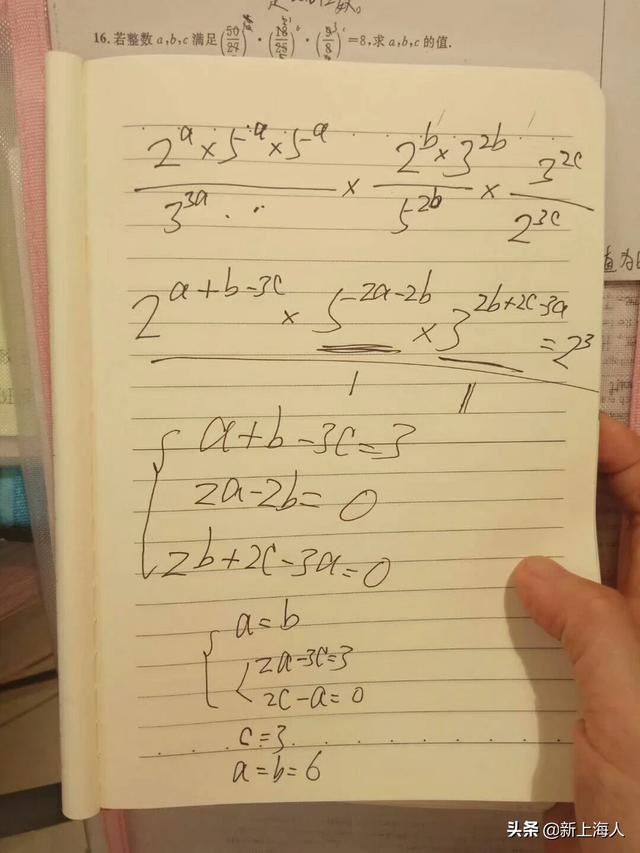 16. 若整数 a,b,c 满足 (50/27)^a · (18/25)^b · (9/8)^c = 8,求 a,b,c 的值.
2^a × 5^a × 5^a / 3^{3a} × 2^b × 3^{2b} / 5^{2b} × 3^{2c} / 2^{3c}
2^{a+b-3c} × 5^{2a-2b} × 3^{2b+2c-3a} = 2^3
1
a+b-3c=3
2a-2b=0
2b+2c-3a=0
a=b
2a-3c=3
2c-a=0
c=3
a=b=6
头条 @新上海人